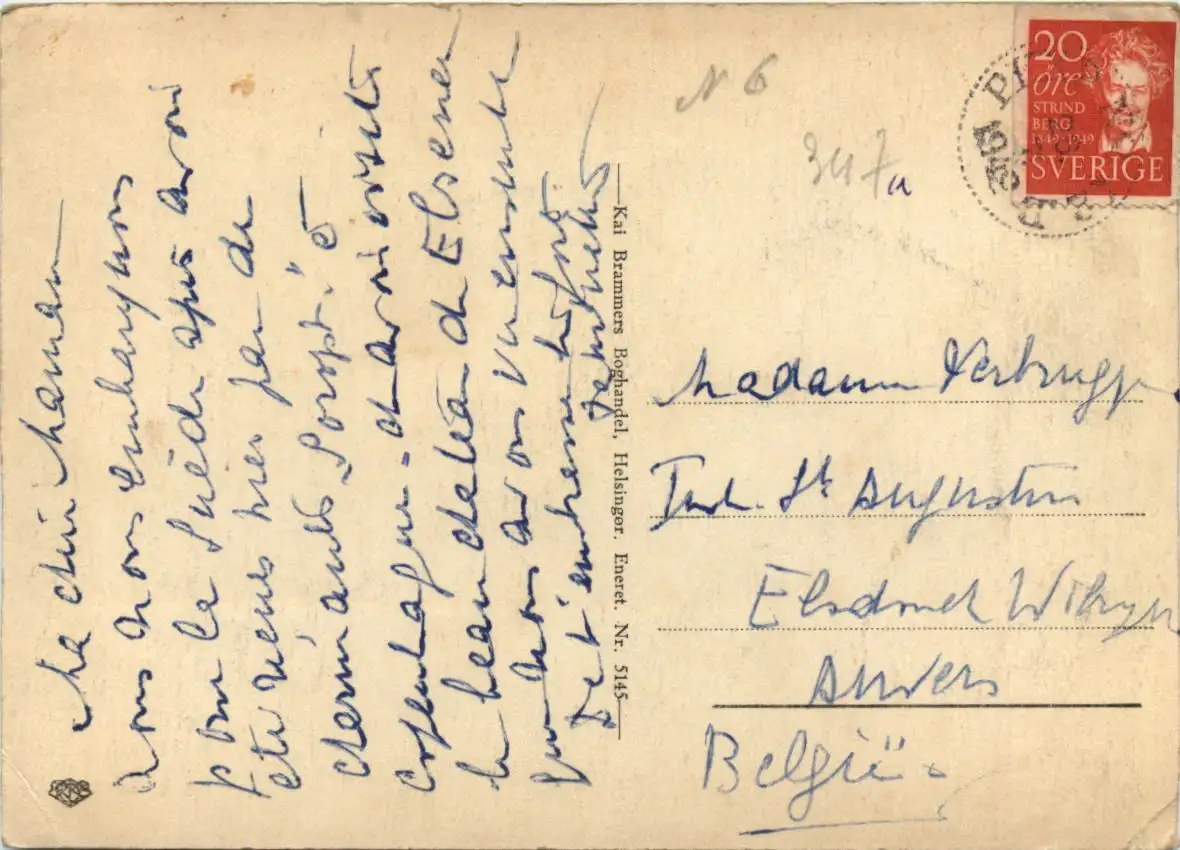 Ma chère Maman
Nous nous embarquons
pour la Suède après avoir
été reçus hier par de
charmants "Soropt." à
Copenhague - et avoir visité
le beau château de Elsener
que nous avons vu ensemble
Je t'embrasse très fort
Kai Brammers Boghandel, Helsingør. Eneret. Nr. 5145
N 6
347a
20
öre
STRIND
BERG
1849-1949
SVERIGE
Madame Verbrugge
St Augustin
Elsdonck Wilryck
Anvers
België